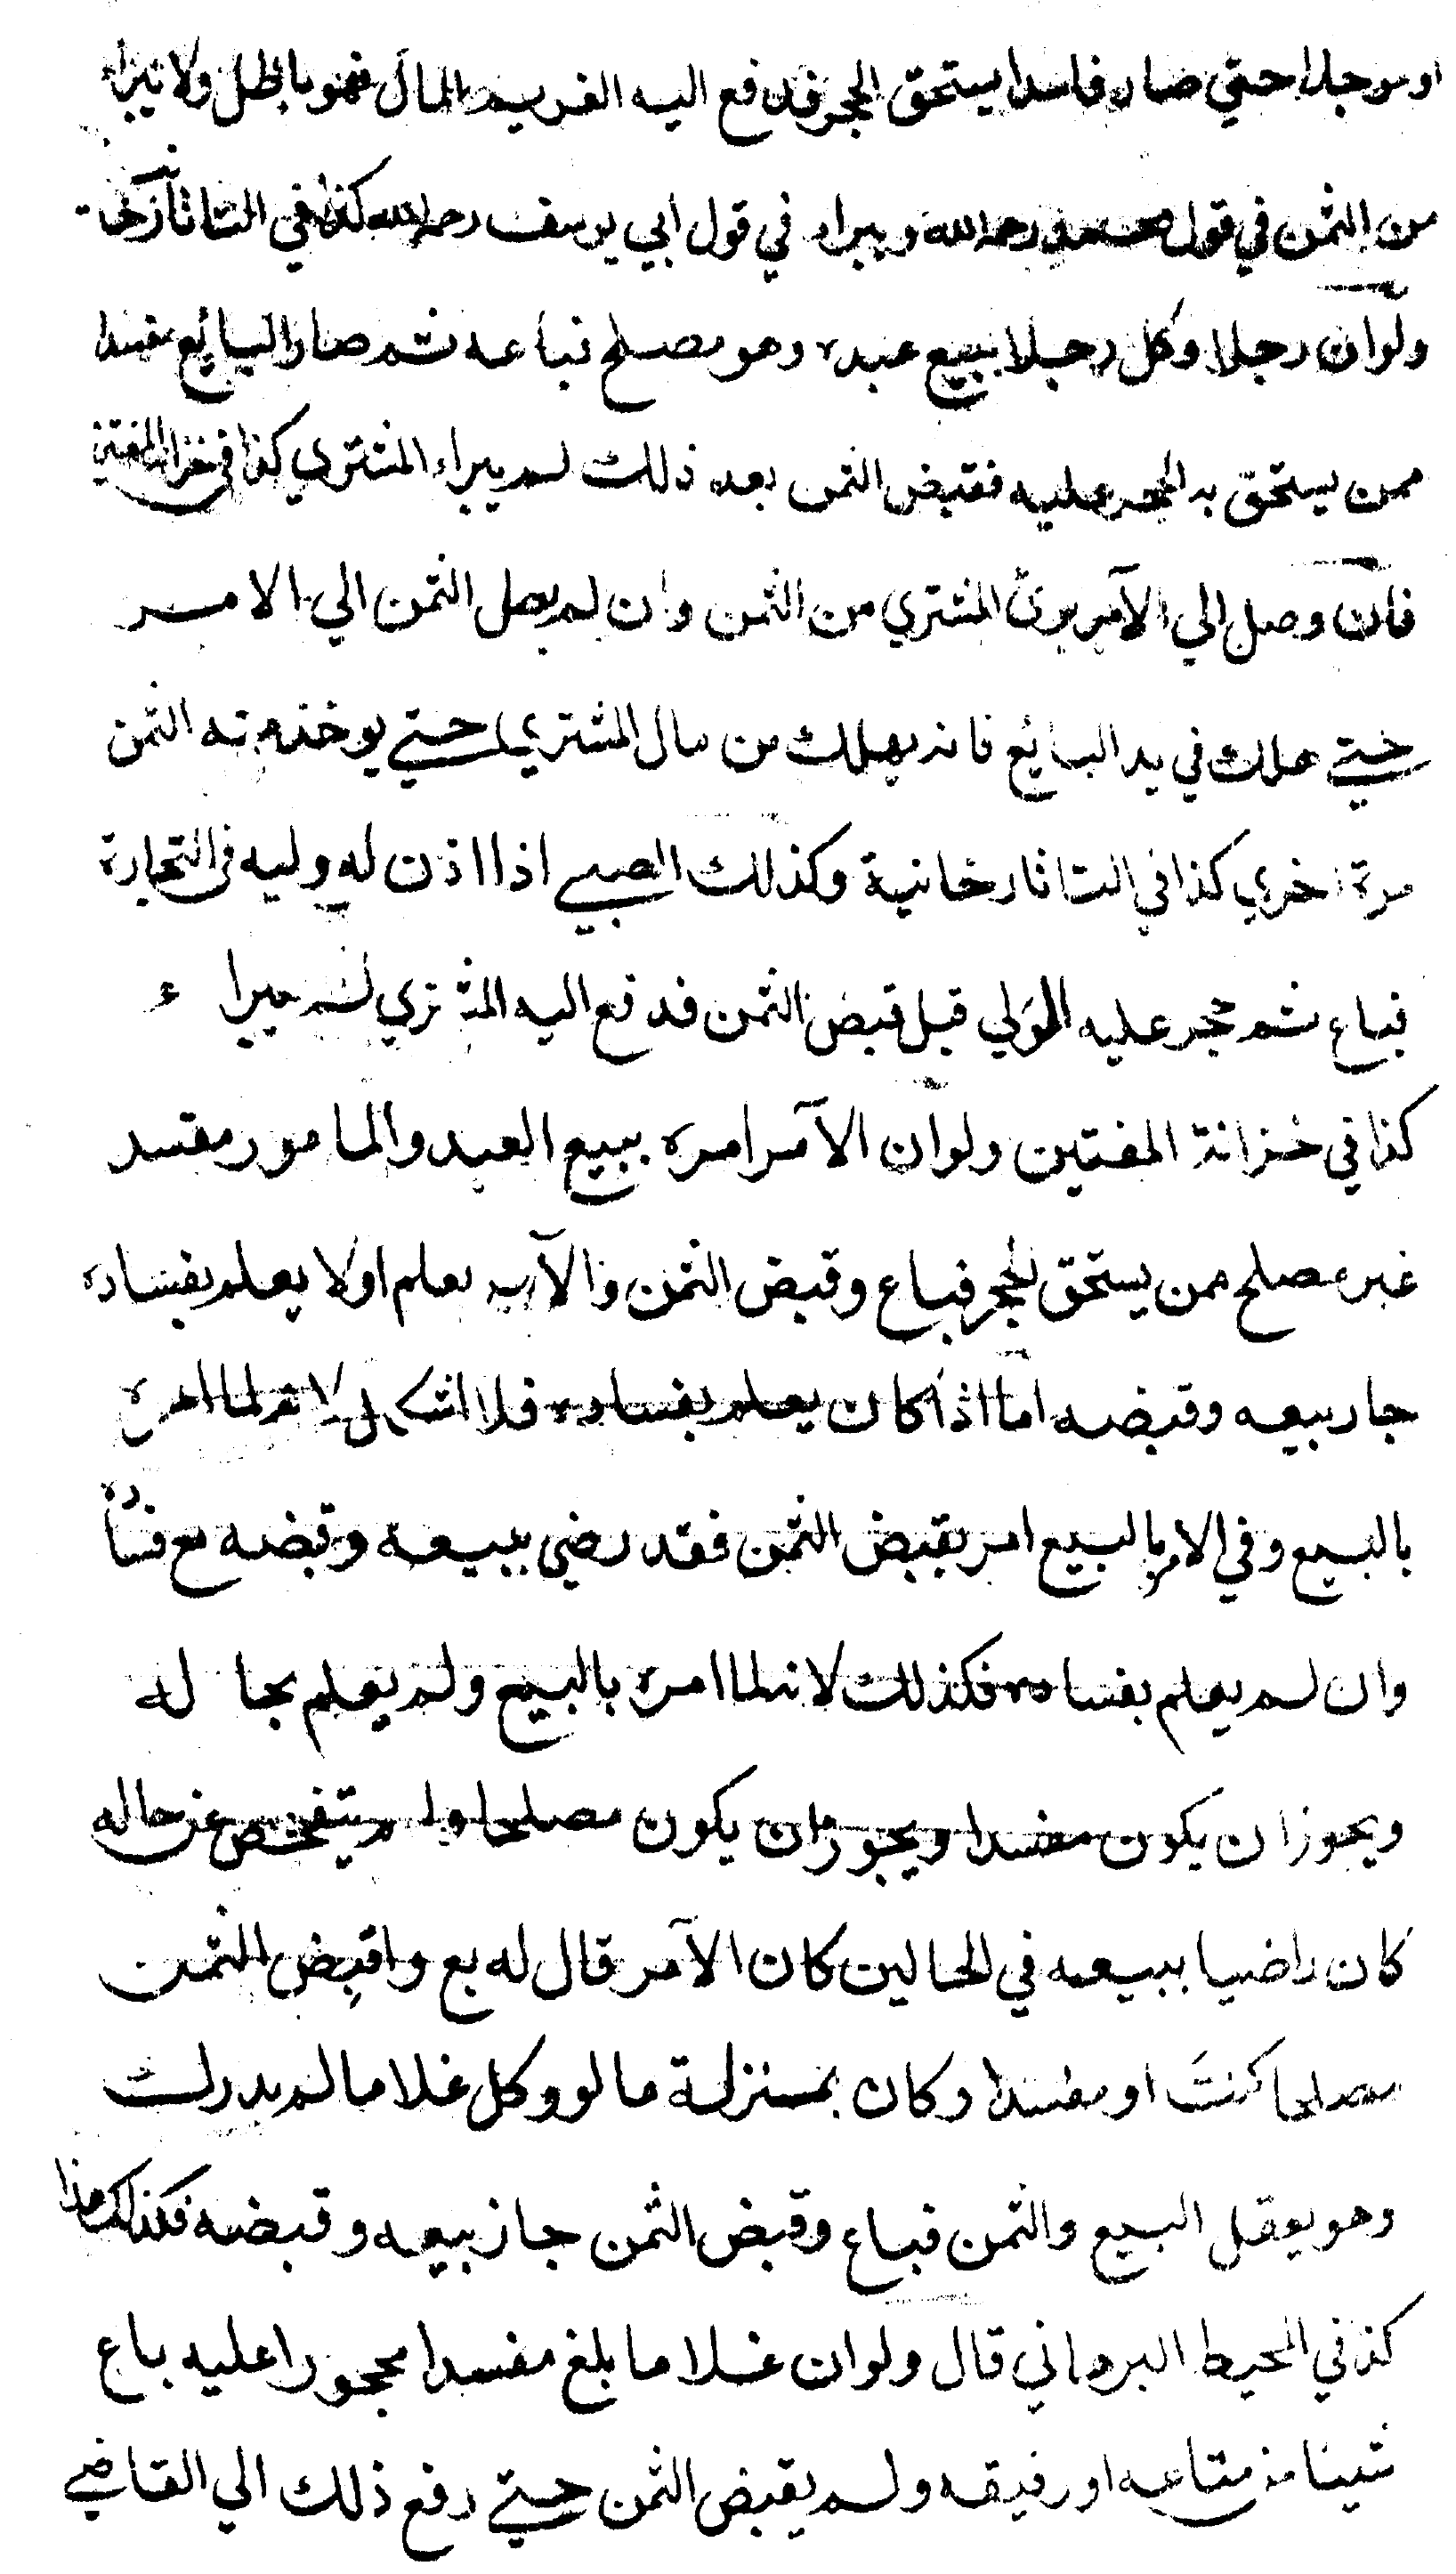 او موجلا حتي صار فاسدا يستحق الحجر فدفع اليه الغريم المال فهو باطل ولا يبراء
من الثمن في قول محمد رحمه الله ويبراء في قول ابي يوسف رحمه الله كذا في التاتارخا
ولو ان رجلا وكل رجلا ببيع عبده وهو مصلح فباعه ثم صار البايع مفسدا
ممن يستحق به الحجر عليه فقبض الثمن بعد ذلك لم يبراء المشتري كذا في خزانة المفتين
فان وصل الي الآمر برئ المشتري من الثمن وان لم يصل الثمن الي الامر
حتي هلك في يد البايع فانه يهلك من مال المشتري حتي يوخذ منه الثمن
مرة اخري كذا في التاتارخانية وكذلك الصبي اذا اذن له وليه في التجارة
فباع ثم حجر عليه المولي قبل قبض الثمن فدفع اليه المشتري لم يبراء
كذا في خزانة المفتين ولو ان الآمر امره ببيع العبد والمامور مفسد
غير مصلح ممن يستحق الحجر فباع وقبض الثمن والآمر يعلم او لا يعلم بفساده
جاز بيعه وقبضه اما اذا كان يعلم بفساده فلا اشكال لانه لما امره
بالبيع وفي الامر بالبيع امر بقبض الثمن فقد رضي ببيعه وقبضه مع فساده
وان لم يعلم بفساده فكذلك لانه لما امره بالبيع ولم يعلم بحاله
ويجوز ان يكون مفسدا ويجوز ان يكون مصلحا ولم يتفحص عن حاله
كان راضيا ببيعه في الحالين كان الآمر قال له بع واقبض الثمن
مصلحا كنت او مفسدا وكان بمنزلة ما لو وكل غلاما لم يدرك
وهو يعقل البيع والثمن فباع وقبض الثمن جاز بيعه وقبضه فكذلك هذا
كذ في المحيط البرهاني قال ولو ان غلاما بلغ مفسدا محجورا عليه باع
شيئا من متاعه او رفيقه ولم يقبض الثمن حتي رفع ذلك الي القاضي